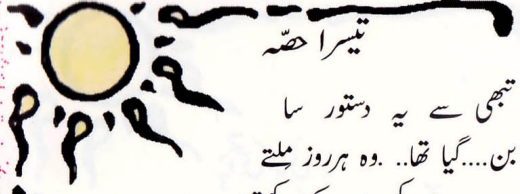 تیسرا حصّہ
تبھی سے یہ دستور سا
بن....گیا تھا.. .وہ ہرروز مِلتے